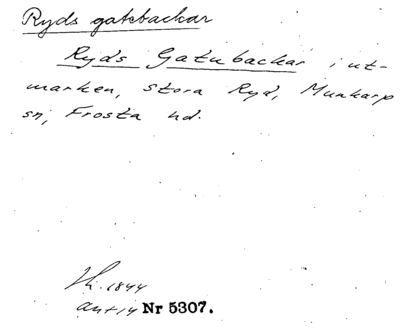 Ryds gatebackar
Ryd's Gatubackar i ut-
marken, Stora Ryd, Munkarp
sn, Frosta hd.
1844
antiq Nr 5307.